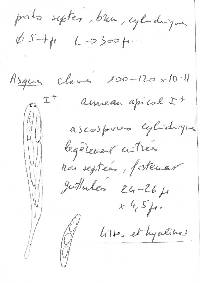 septés, bruns, cylindriques
L → 300 µ
Asques clavés 100-120 x 10-11
I+ anneau apical I+
ascospores cylindriques
légèrement
non septées, fortement
guttulées 24-26 µ
x 4,5 µ.
lisses et hyalines